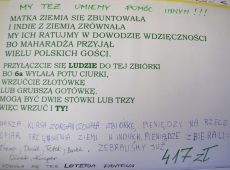 MY TEŻ UMIEMY POMÓC INNYM !!!
MATKA ZIEMIA SIĘ ZBUNTOWAŁA
I INDIE Z ZIEMIĄ ZRÓWNAŁA
MY ICH RATUJMY W DOWODZIE WDZIĘCZNOŚCI
BO MAHARADŻA PRZYJĄŁ
WIELU POLSKICH GOŚCI.
PRZYŁĄCZCIE SIĘ LUDZIE DO TEJ ZBIÓRKI
BO 6a WYLAŁA POTU CIURKI,
WRZUĆCIE ZŁOTÓWKĘ
LUB GRUBSZĄ GOTÓWKĘ.
MOGĄ BYĆ DWIE STÓWKI LUB TRZY
WIĘC WRZUĆ I TY!
NASZA KLASA ZORGANIZOWAŁA ZBIÓRKĘ PIENIĘDZY NA RZECZ
OFIAR TRZĘSIENIA ZIEMI W INDIACH. PIENIĄDZE ZBIERALI:
ZEBRALIŚMY JUŻ
417 zł
LOTERIA FANTOWA